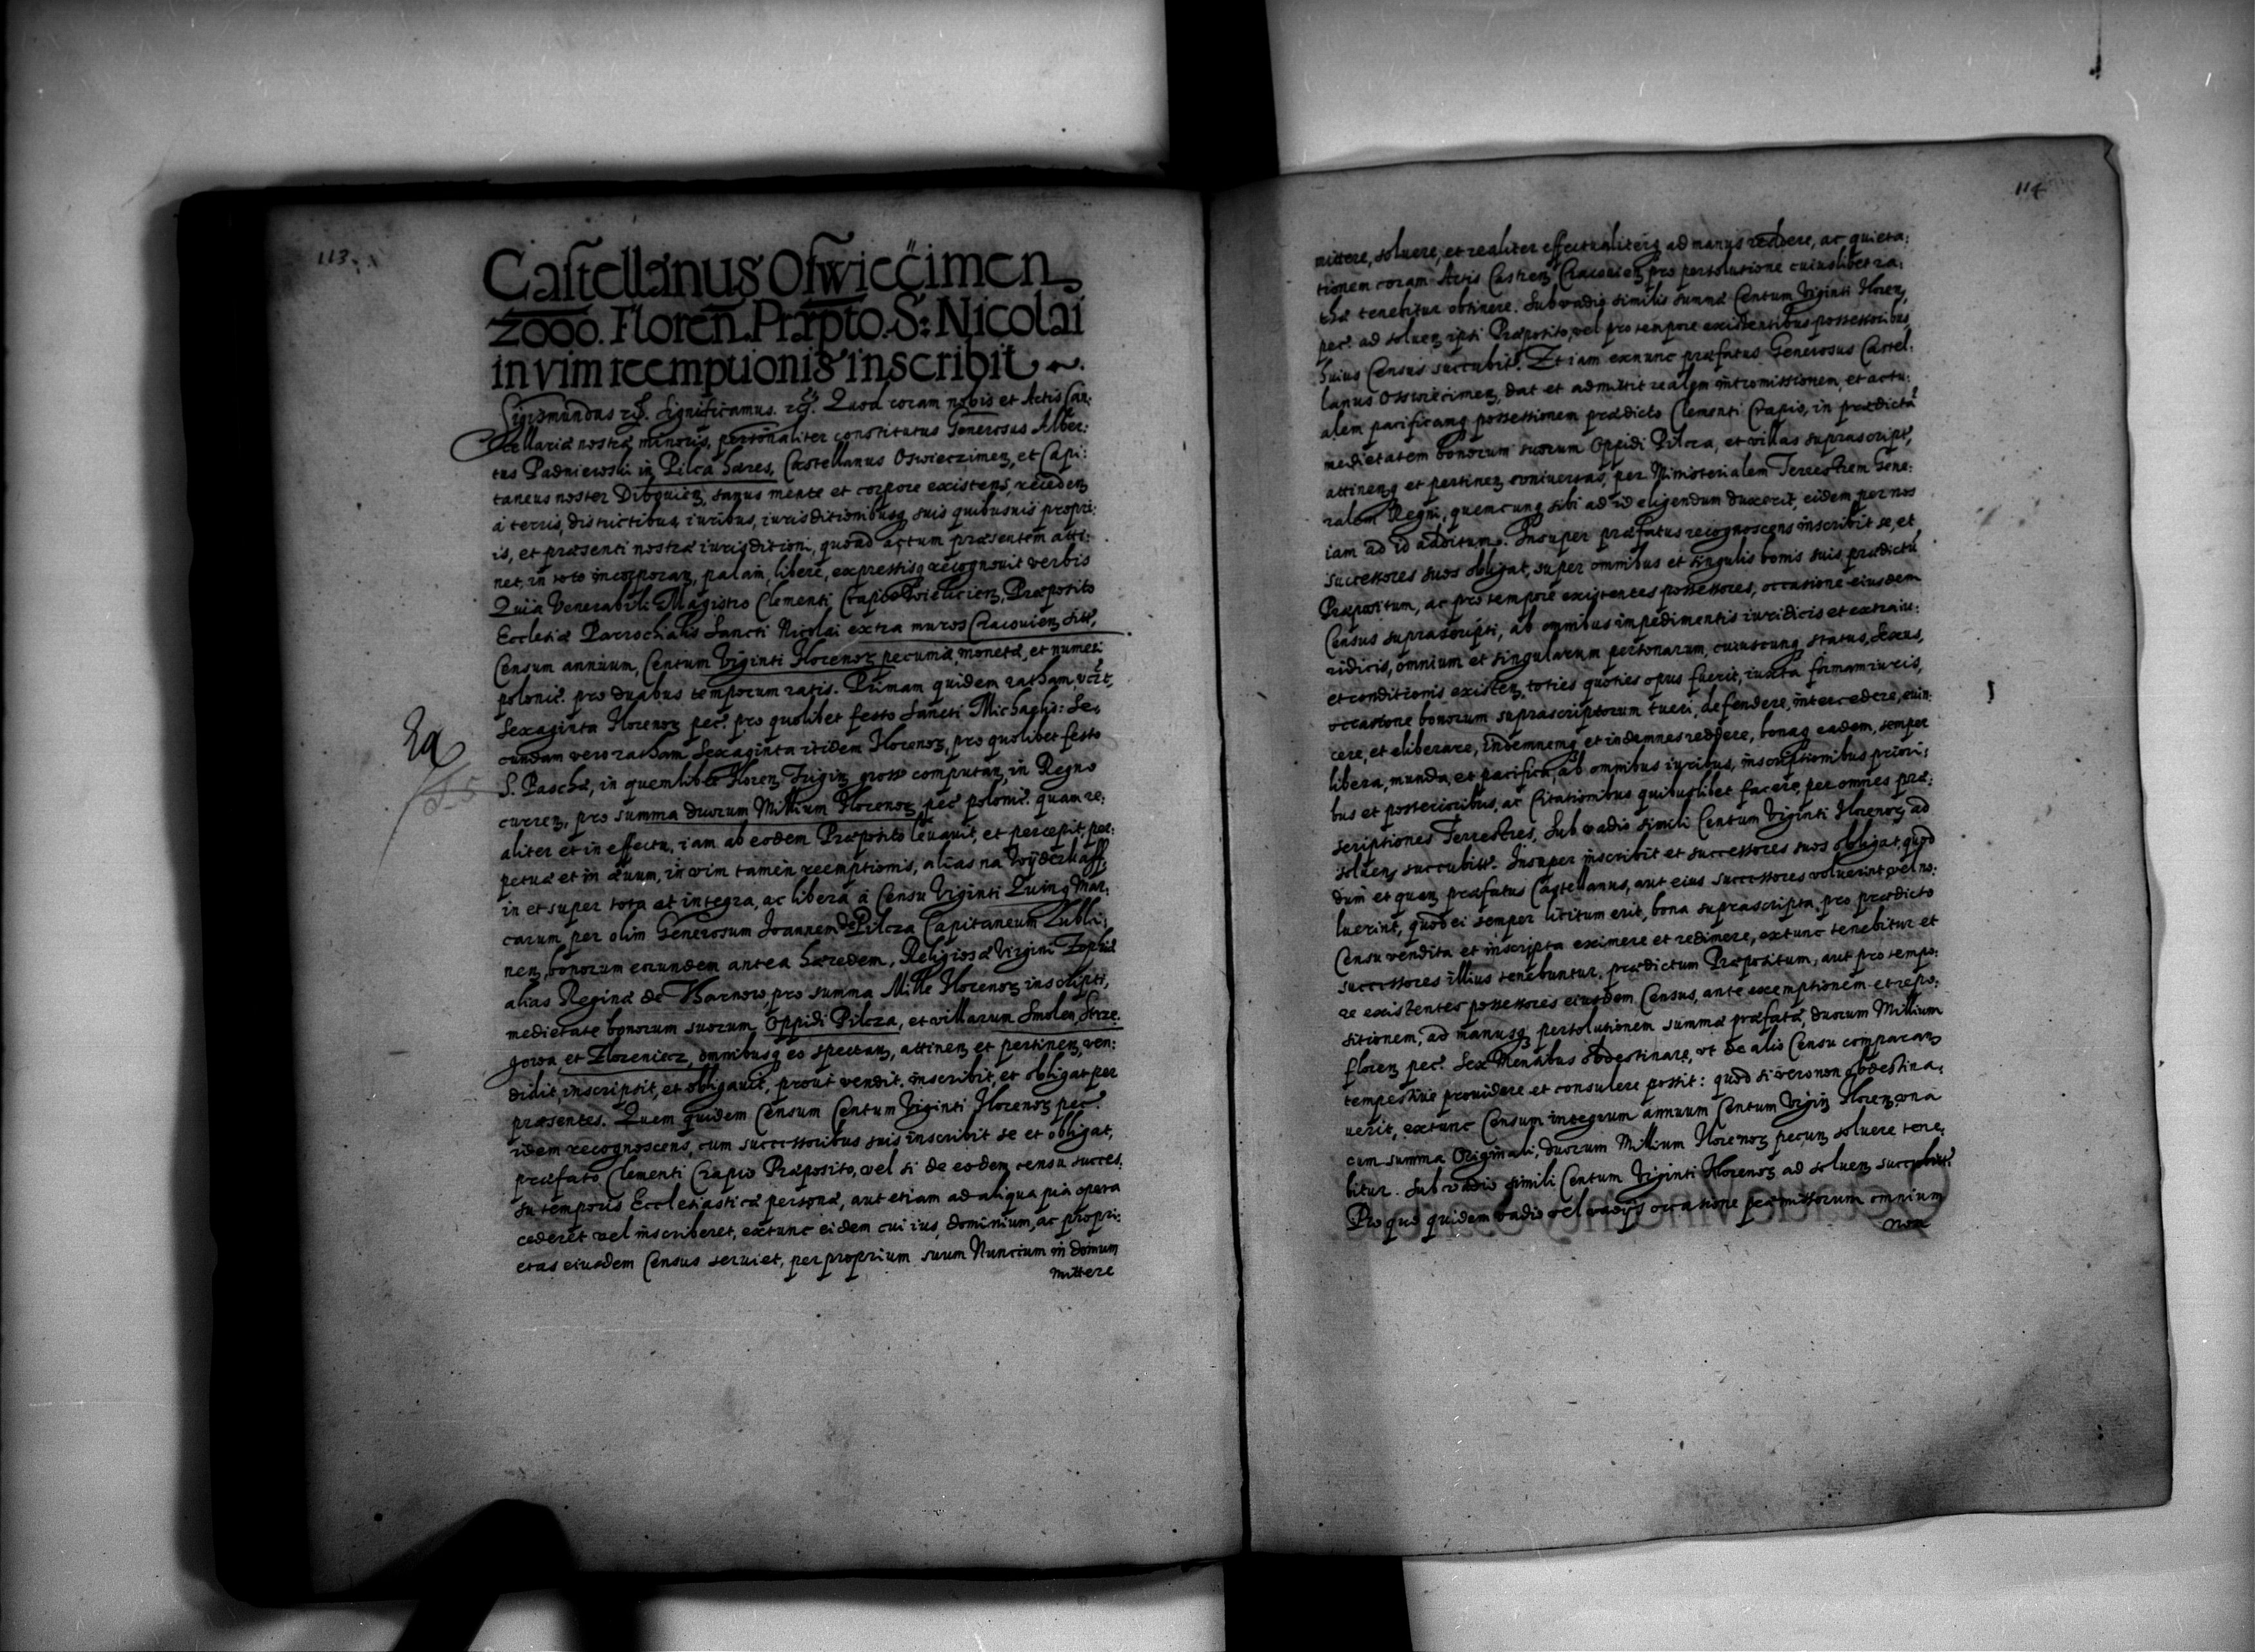 113.
Castellanus Oswiecimen
2000. Floren. Præpto. S: Nicolai
in vim reemptionis inscribit
Sigismundus etc. Significamus. etc. Quod coram nobis et Actis Can:
cellariæ nostræ minoris, personaliter constitutus Generosus Alber:
tus Padniewski in Pilca hæres, Castellanus Oswieczimen, et Capi:
taneus noster Dibouien, sanus mente et corpore existens, recedens
à terris, districtibus, iuribus, iurisditionibusq suis quibusuis propri:
is, et præsenti nostræ iurisditioni, quoad actum præsentem atti:
net, in toto incorporans, palam, libere, expressisq recognouit verbis
Quia Venerabili Magistro Clementi Crapio Wielicien, Præposito
Ecclesiæ Parrochialis Sancti Nicolai extra muros Cracouien sitæ,
Censum annuum, Centum Viginti Florenor pecuniæ, monetæ, et numeri
polonic. pro duabus temporum ratis. Primam quidem ratham, vizt,
Sexaginta Florenor pec. pro quolibet festo Sancti Michaelis: Se,
cundam vero ratham Sexaginta itidem Florenor, pro quolibet festo
S. Paschæ, in quemlibet Floren Trigin gross computan, in Regno
curren, pro summa duorum Millium Florenor pec polonic. quam re:
aliter et in effectu, iam ab eodem Præposito leuauit, et percepit, per:
petuæ et in æuum, in vim tamen reemptionis, alias na Wyderkaff,
in et super tota et integra, ac libera à Censu Viginti Quinq Mar:
carum per olim Generosum Joannem de Pilcza Capitaneum Lubli:
nen, bonorum eorundem antea hæredem, Religiosæ Virgini Zophiæ
alias Reginæ de Tharnow, pro summa Mille Florenor inscripti,
medietate bonorum suorum Oppidi Pilcza, et villarum Smolen, Strze.
gowa, et Zlozeniecz, omnibusq eo spectan, attinen et pertinen, ven:
didit, inscripsit, et obligauit, prout vendit, inscribit, et obligat per
præsentes. Quem quidem Censum Centum Viginti Florenor pec.
idem recognoscens, cum successoribus suis inscribit se et obligat,
præfato Clementi Crapio Præposito, vel si de eodem censu succes,
su temporis Ecclesiasticæ personæ, aut etiam ad aliqua pia opera
cederet vel inscriberet, extunc eidem cui ius, dominium, ac propri:
etas eiusdem Census seruiet, per proprium suum Nuncium in domum
mittere
114
mittere, soluere, et realiter effectualiterq ad manus reddere, ac quieta:
tionem coram Actis Castren Cracouien pro persolutione cuiuslibet ra:
thæ tenebitur obtinere. Sub vadio similis summæ Centum Viginti Floren,
pec. ad soluen ipsi Præposito, vel pro tempore existentibus possessoribus,
huius Census succubit. Et iam exnunc præfatus Generosus Castel:
lanus Osswiecimen, dat et admittit realem intromissionem, et actu:
alem pacificamq possessionem prædicto Clementi Crapio, in prædictâ
medietatem bonorum suorum Oppidi Pilcza, et villas suprascript,
attinenq et pertinen vniuersas, per Ministerialem Terrestrem Gene:
ralem Regni, quemcunq sibi ad id eligendum duxerit, eidem per nos
iam ad id additum. Insuper præfatus recognoscens inscribit se, et
successores suos obligat, super omnibus et singulis bonis suis, prædictu
Præpositum, ac pro tempore existentes possessores, occasione eiusdem
Census suprascripti, ab omnibus impedimentis iuridicis et extraiu:
ridicis, omnium et singularum personarum, cuiuscunq status, sexus,
et conditionis existen, toties quoties opus fuerit, iuxta formam iuris,
occasione bonorum suprascriptorum tueri, defendere, intercedere, euin:
cere, et eliberare, indemnemq et indemnes reddere, bonaq eadem, semper
libera, munda, et pacifica, ab omnibus iuribus, inscriptionibus priori:
bus et posterioribus, ac Citationibus quibuslibet facere, per omnes præ:
scriptiones Terrestres, Sub vadio simili Centum Viginti Florenor ad
soluen succubit. Insuper inscribit et successores suos obligat, quod
dum et quan præfatus Castellanus, aut eius successores voluerint, vel no:
luerint, quod ei semper licitum erit, bona suprascripta pro prædicto
Censu vendita et inscripta eximere et redimere, extunc tenebitur et
successores illius tenebuntur. prædictum Præpositum, aut pro tempo:
re existentes possessores eiusdem Census, ante exemptionem et repo:
sitionem, ad manusq persolutionem summæ præfatæ, duorum Millium
floren pec. Sex Mensibus obdestinare, vt de alio Censu comparan
tempestiue prouidere et consulere possit: quod si vero non obdestina,
uerit, extunc Censum integrum annuum Centum Vigin Floren, vna
cum summa Originali, duorum Millium Florenor pecun soluere tene,
bitur. Sub vadio simili Centum Viginti Florenor ad soluen succubit.
Pro quo quidem vadio vel vadijs occasione præmissorum omnium
non